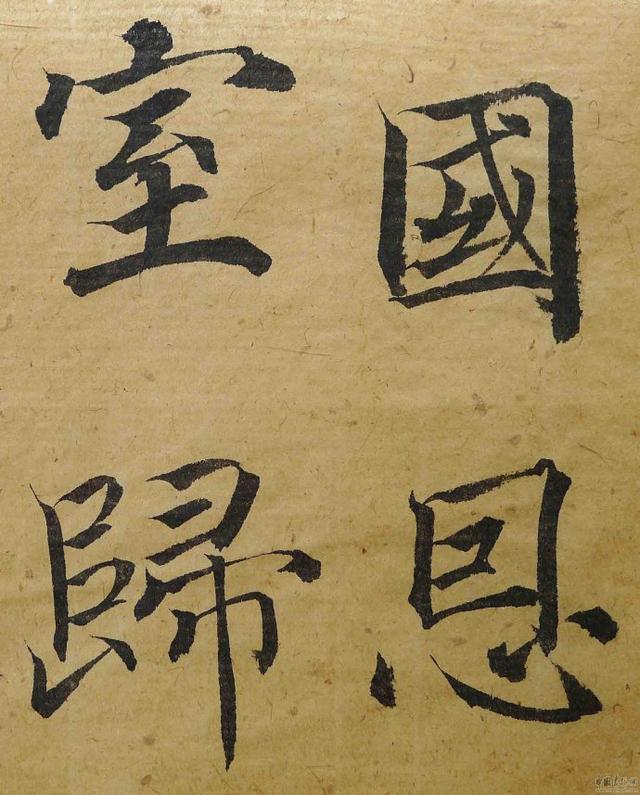 國恩
室歸